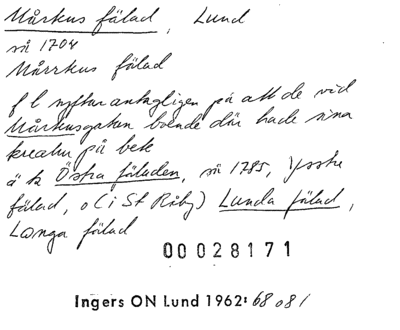 Mårkus fälad, Lund
så 1704
Mårrkus fälad
f l syftar antagligen på att de vid
Mårkusgatan boende där hade sina
kreatur på bete
ä k Östra fäladen, så 1785, Ysstre
fälad, o (i St Råby) Lunda fälad,
Långa fälad
00028171
Ingers ON Lund 1962: 68 o 81